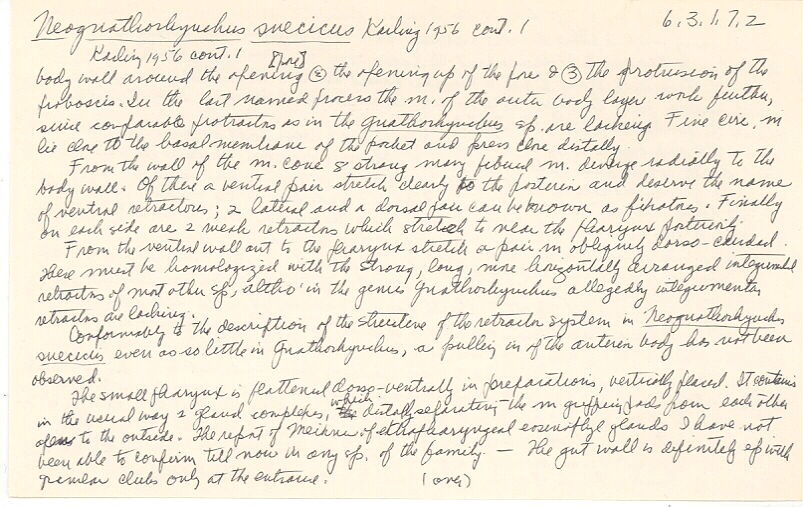 Neognathorhynchus suecicus Karling 1956 cont. 1 6.3.1.7.2
Karling 1956 cont. 1
[pore]
body wall around the opening ② the opening up of the pore & ③ the protrusion of the
proboscis. In the last named process the m. of the outer body layer work further,
since comparable protractors as in the Gnathorhynchus sp. are lacking. Fine circ. m
lie close to the basal membrane of the pocket and press close distally.
From the wall of the m. cone 8 strong many fibered m. diverge radially to the
body wall. Of these a ventral pair stretch clearly to the posterior and deserve the name
of ventral retractors; 2 lateral and a dorsal pair can be known as fixators. Finally
on each side are 2 weak retractors which stretch to near the pharynx posteriorly.
From the ventral wall out to the pharynx stretch a pair m obliquely dorso-caudad.
These must be homologized with the strong, long, more horizontally arranged integumental
retractors of most other sp, altho' in the genus Gnathorhynchus allegedly integumentary
retractors are lacking.
Conformably to the description of the structure of the retractor system in Neognathorhynchus
suecicus even as so little in Gnathorhynchus, a pulling in of the anterior body has not been
observed.
The small pharynx is flattened dorso-ventrally in preparations, vertically placed. It contains
in the usual way 2 gland complexes, which distally separating the m gripping pads from each other
opens to the outside. The report of Meixner of extrapharyngeal eosinophyl glands I have not
been able to confirm till now in any sp. of the family. — The gut wall is definitely ep with
granular clubs only at the entrance. (over)